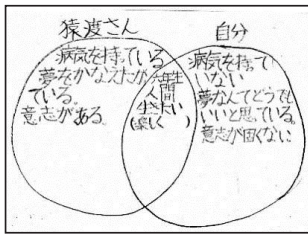 猿渡さん
病気を持っている
夢をかなえたがっ
ている。
意志がある。
人間
生きたい
(楽しく )
自分
病気を持って
いない
夢なんてどうでも
いいと思っている。
意志が固くない